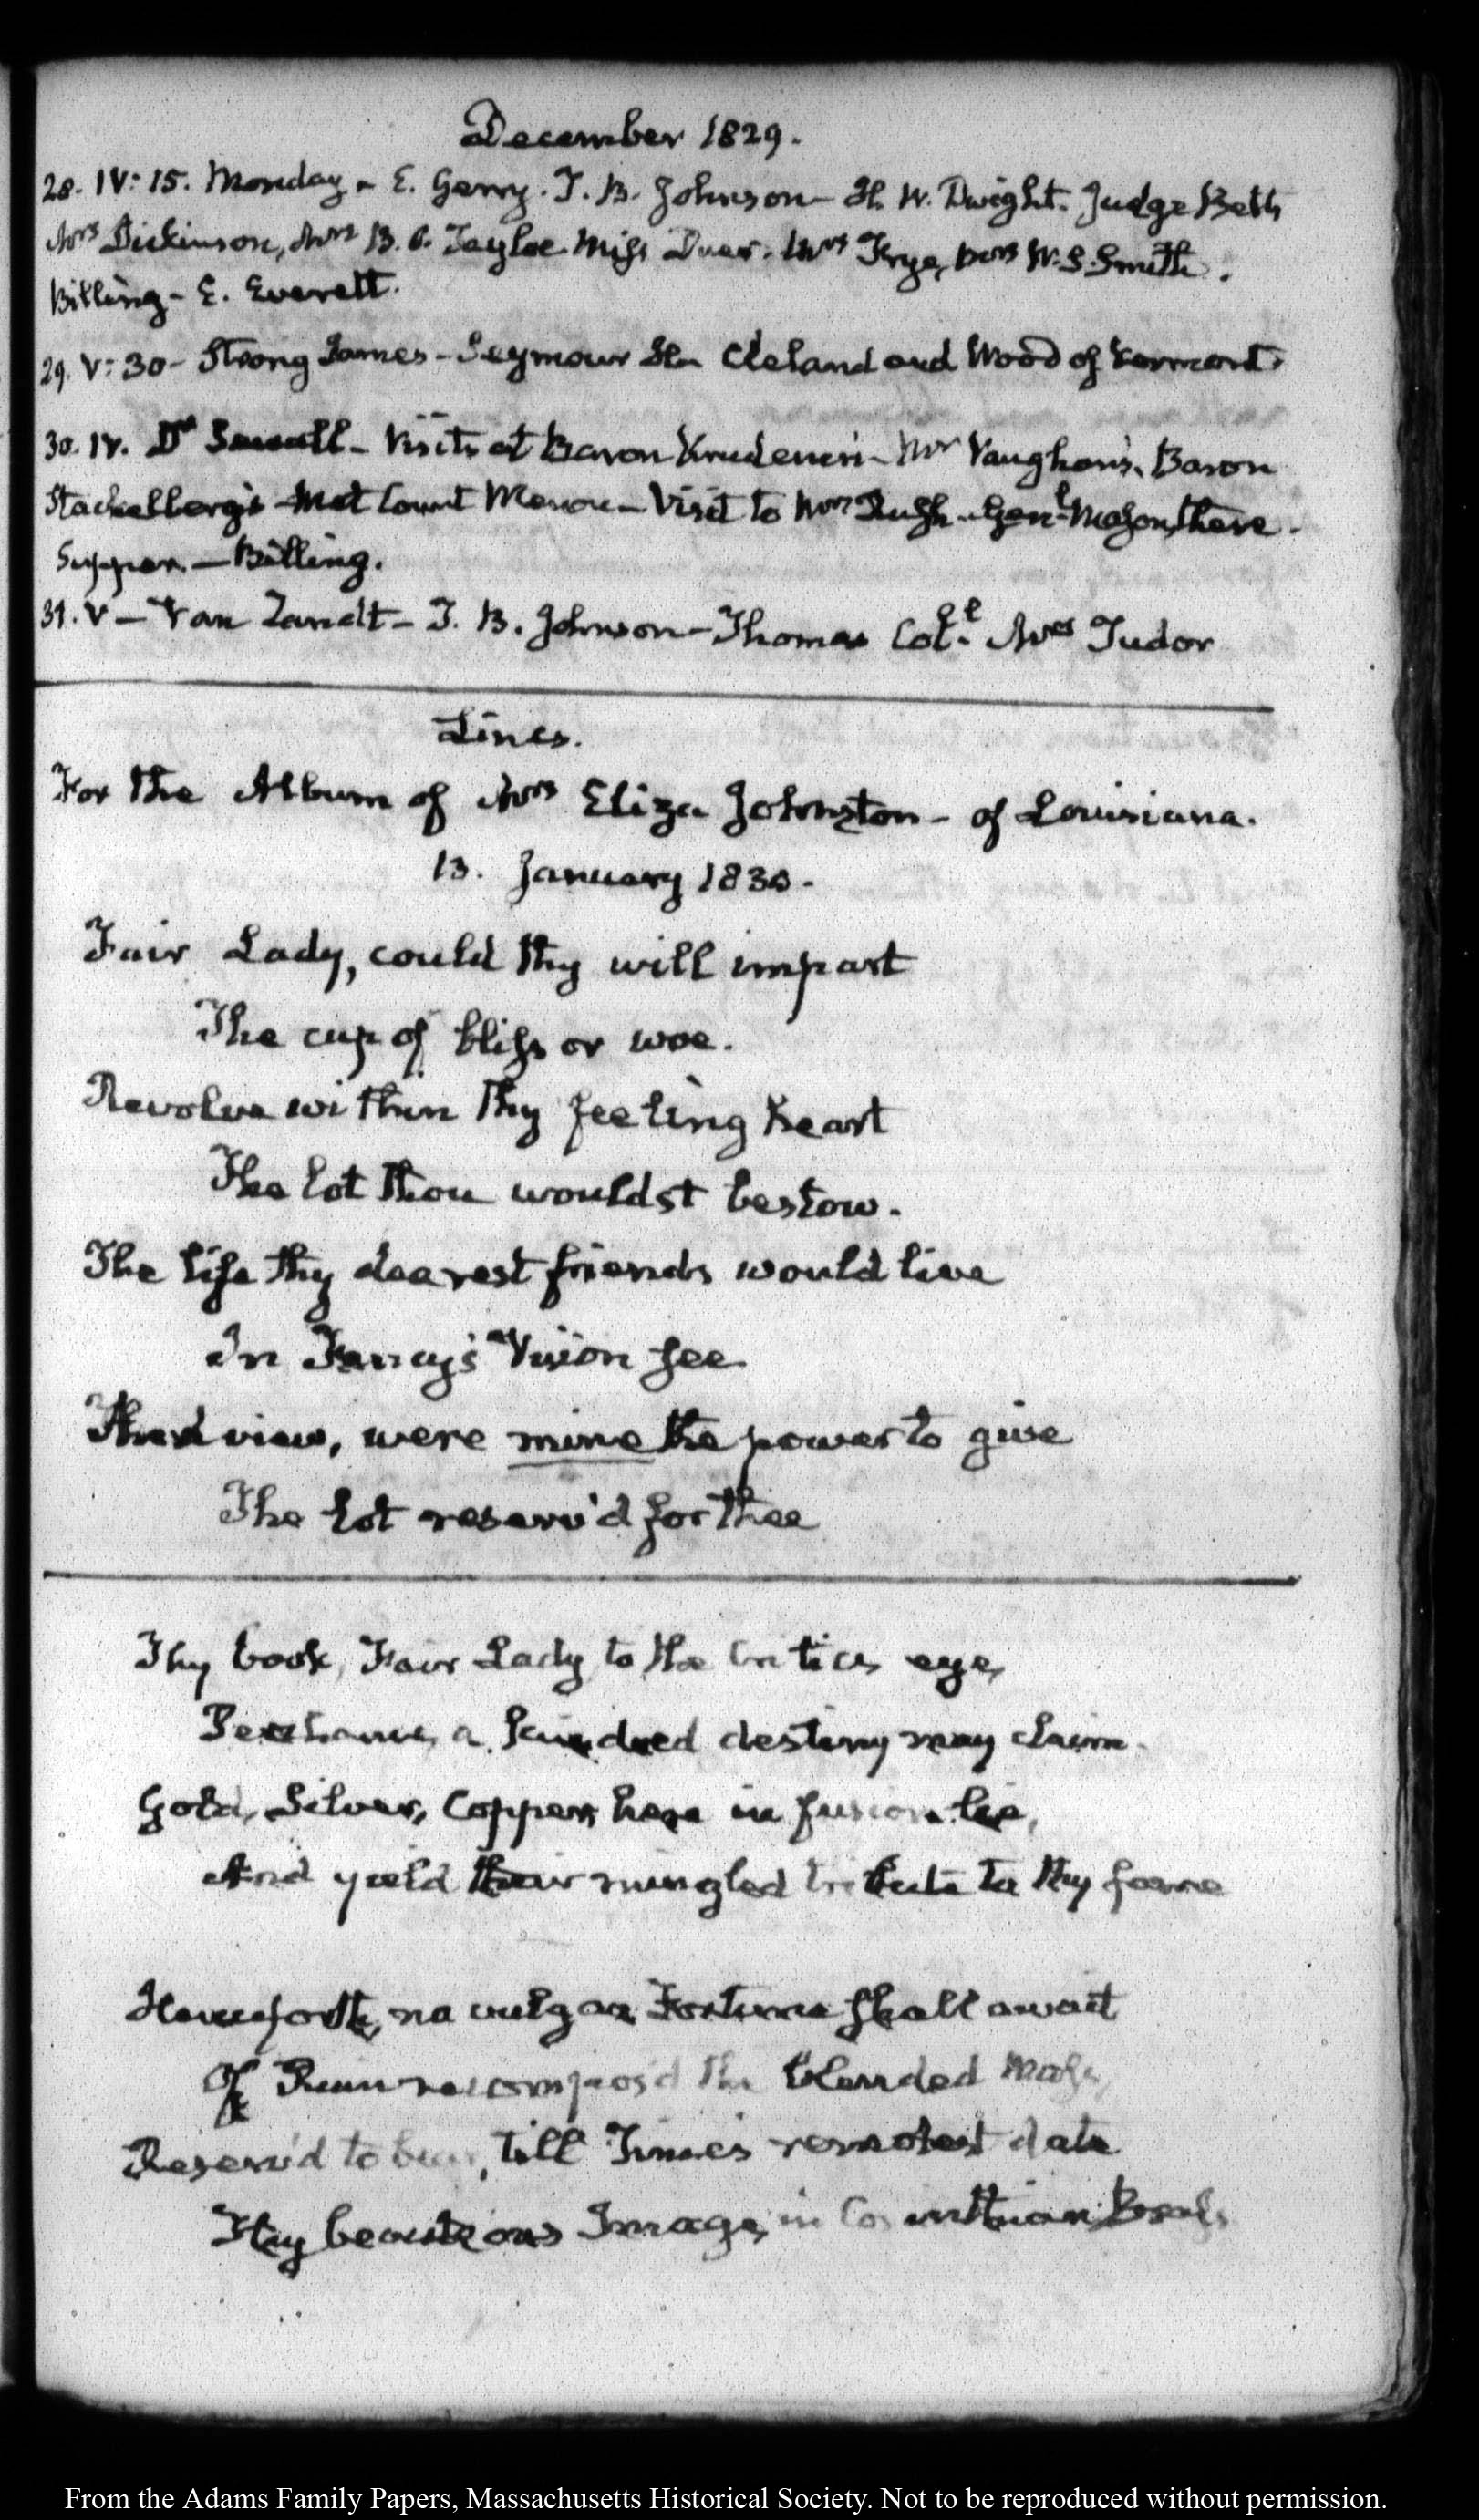 December 1829.
28. IV: 15. Monday - E. Gerry. T. B. Johnson - H. W. Dwight. Judge Betts
Mrs Dickinson, Mrs B. O. Tayloe Miss Duer. Mrs Frye, Mrs W. S. Smith.
Billing - E. Everett.
29. V: 30 - Strong James - Seymour H. Cleland and Wood of Vermont.
30. IV. Dr Sewall - Visits at Baron Krudener's - Mr Vaughan's. Baron
Stackelberg's - Met Count Menou - Visit to Mrs Rush - Genl. Mason, there -
Supper - Billing.
31. V - Van Zandt - T. B. Johnson - Thomas Coll. Mrs Tudor
Lines.
For the Album of Mrs Eliza Johnston - of Louisiana.
13. January 1830.
Fair Lady, could thy will impart
The cup of bliss or woe.
Revolve within thy feeling heart
The lot thou wouldst bestow.
The life thy dearest friends would live
In Fancy's Vision see
Then view, were mine the power to give
The lot reserv'd for thee
Thy book, Fair Lady, to the Critic's eye,
Perchance, a kindred destiny may claim.
Gold, Silver, Copper, here in fusion lie,
And yield their mingled tribute to thy fame
Henceforth, no vulgar Fortune shall await
Of Ruin recompos'd the blended Mass,
Reserv'd to bear, till Time's remotest date
Thy beauteous Image, in Corinthian Brass.
From the Adams Family Papers, Massachusetts Historical Society. Not to be reproduced without permission.